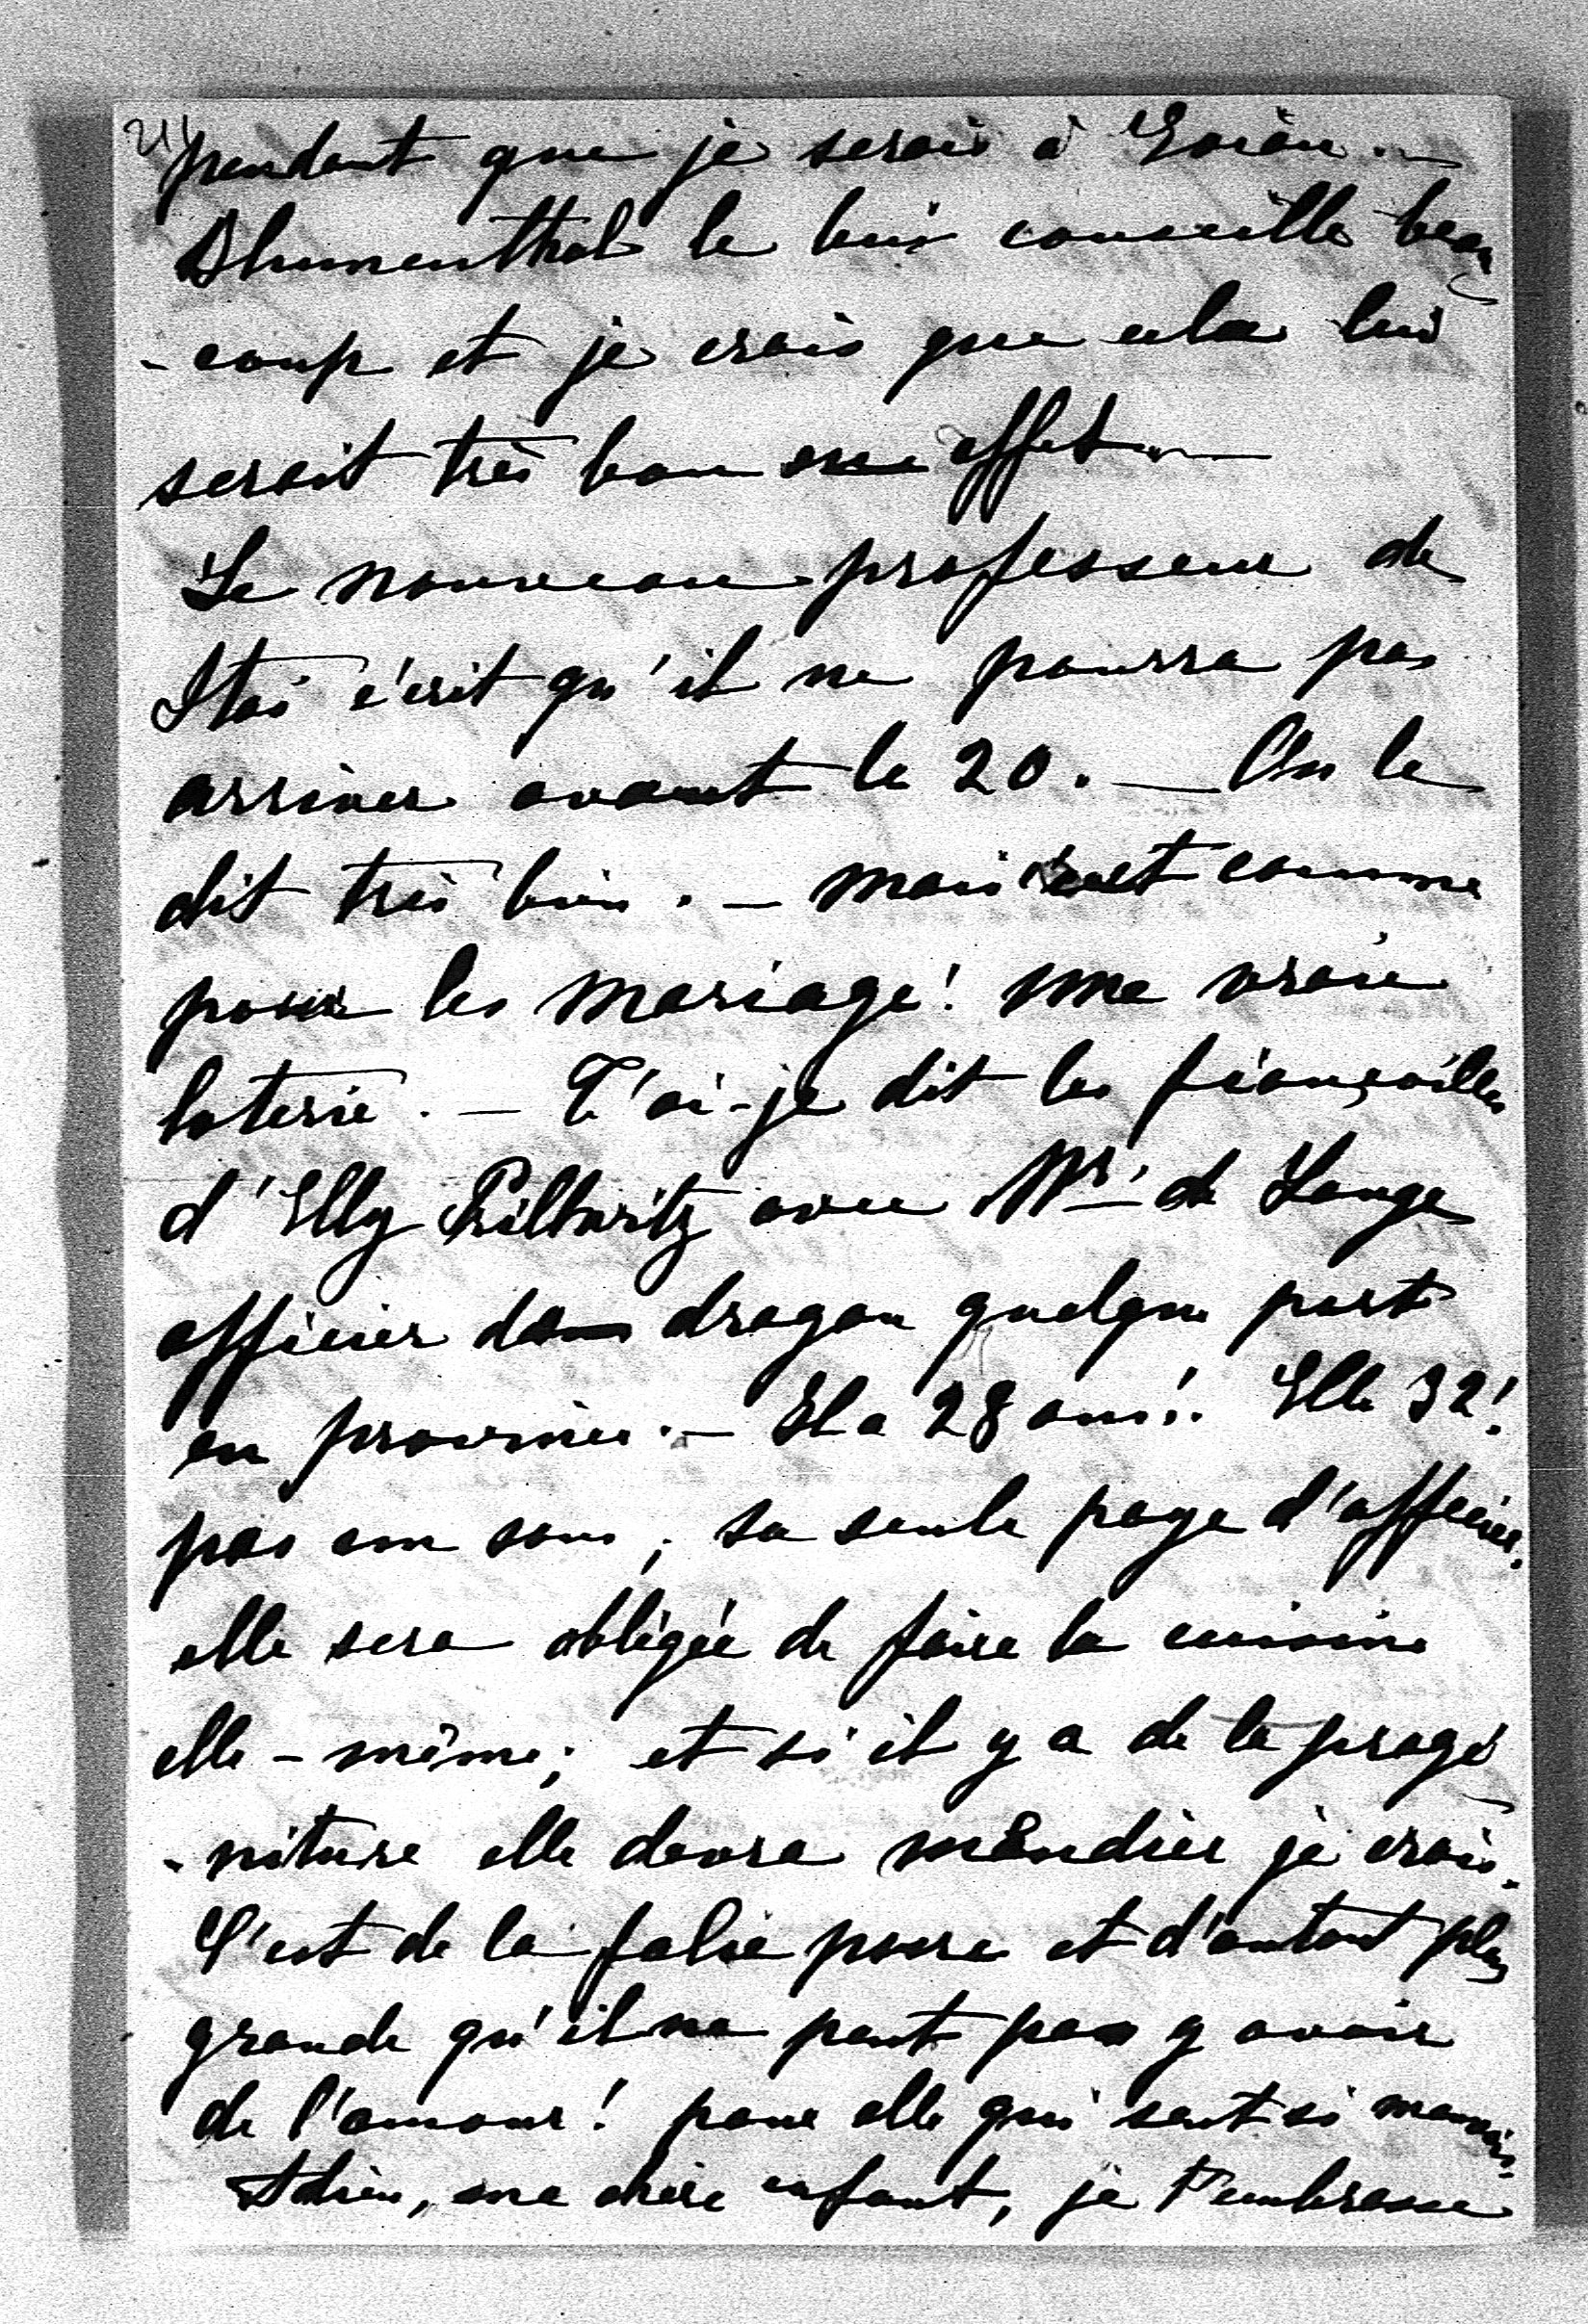 pendant que je serais à Evian. —
Blumenthal le lui conseille beau
- coup et je crois que cela lui
serait très bon effet. —
Le nouveau professeur de
Stas écrit qu'il ne pourra pas
arriver avant le 20. — On le
dit très bien. — mais c'est comme
pour les mariage! une vraie
loterie. — T'ai-je dit les fiançailles
d'Elly Prillwitz avec Mr. de Lange
officier dans dragon quelque part
en province. — Il a 28 ans!. Elle 32!
pas un sous, sa seule paye d'officier.
elle sera obligée de faire la cuisine
elle - même; et si il y a de la progé
- niture elle devra mendier je crois.
C'est de la folie pure et d'autant plus
grande qu'il ne peut pas y avoir
de l'amour! pour elle qui sent si mauvais.
Adieu, ma chère enfant, je t'embrasse